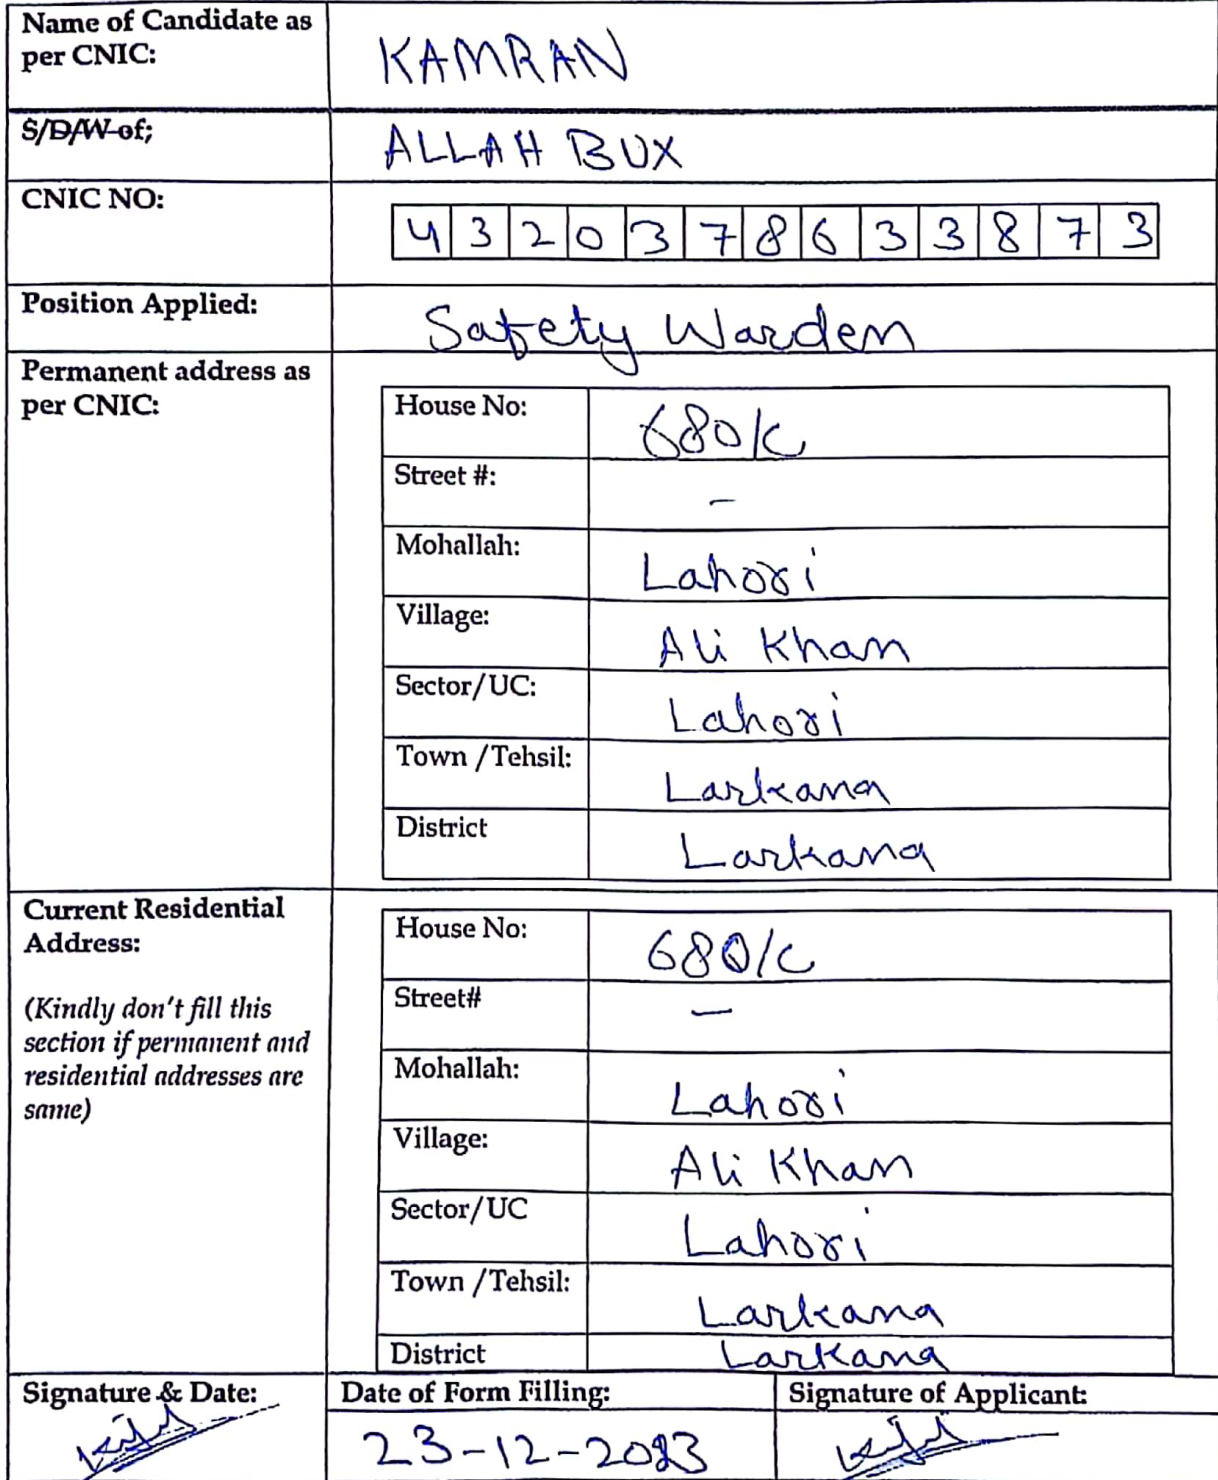 Name of Candidate as
per CNIC:
KAMRAN
S/D/W of;
ALLAH BUX
CNIC NO:
4 3 2 0 3 7 8 6 3 3 8 7 3
Position Applied:
Safety Warden
Permanent address as
per CNIC:
House No:
680/C
Street #:
-
Mohallah:
Lahori
Village:
Ali Khan
Sector/UC:
Lahori
Town /Tehsil:
Larkana
District
Larkana
Current Residential
Address:
(Kindly don't fill this
section if permanent and
residential addresses are
same)
House No:
680/C
Street#
-
Mohallah:
Lahori
Village:
Ali Khan
Sector/UC
Lahori
Town /Tehsil:
Larkana
District
Larkana
Signature & Date:
Date of Form Filling:
23-12-2023
Signature of Applicant: